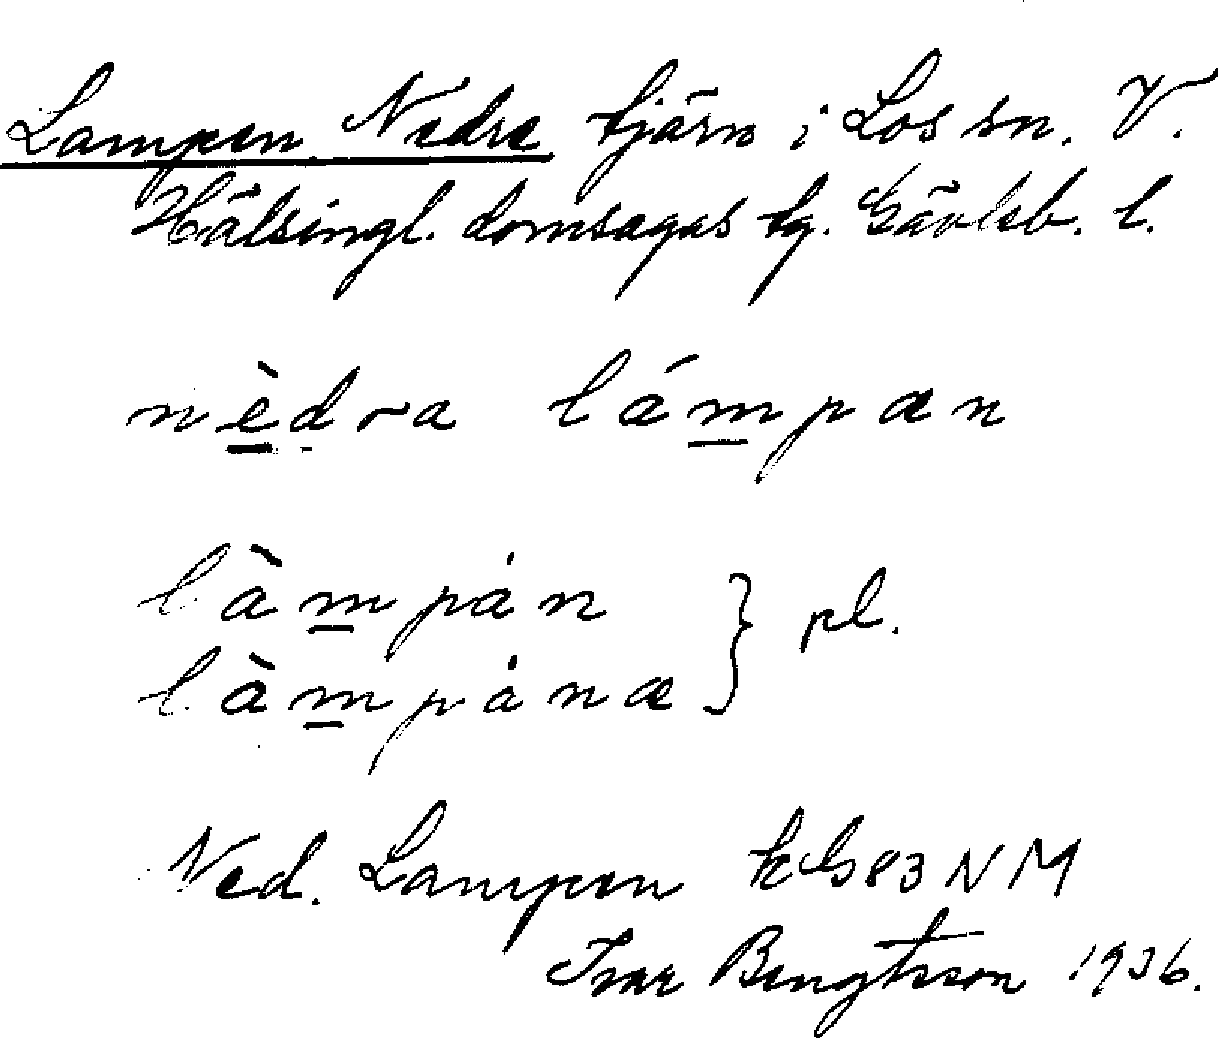 Lampen, Nedre tjärn i Los sn. V.
Hälsingl. domsagas tg. Gävleb. l.
nèdra lámpæn
làmpȧn } pl.
làmpȧnæ
Ned. Lampen kG83NM
Ivar Bengtsson 1936.